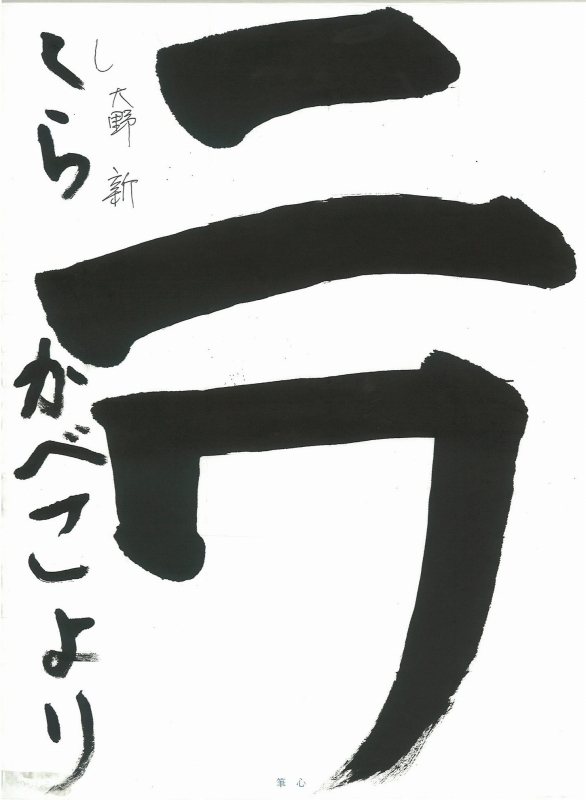 ニワ
し 大野 新
くら かべこより
筆心